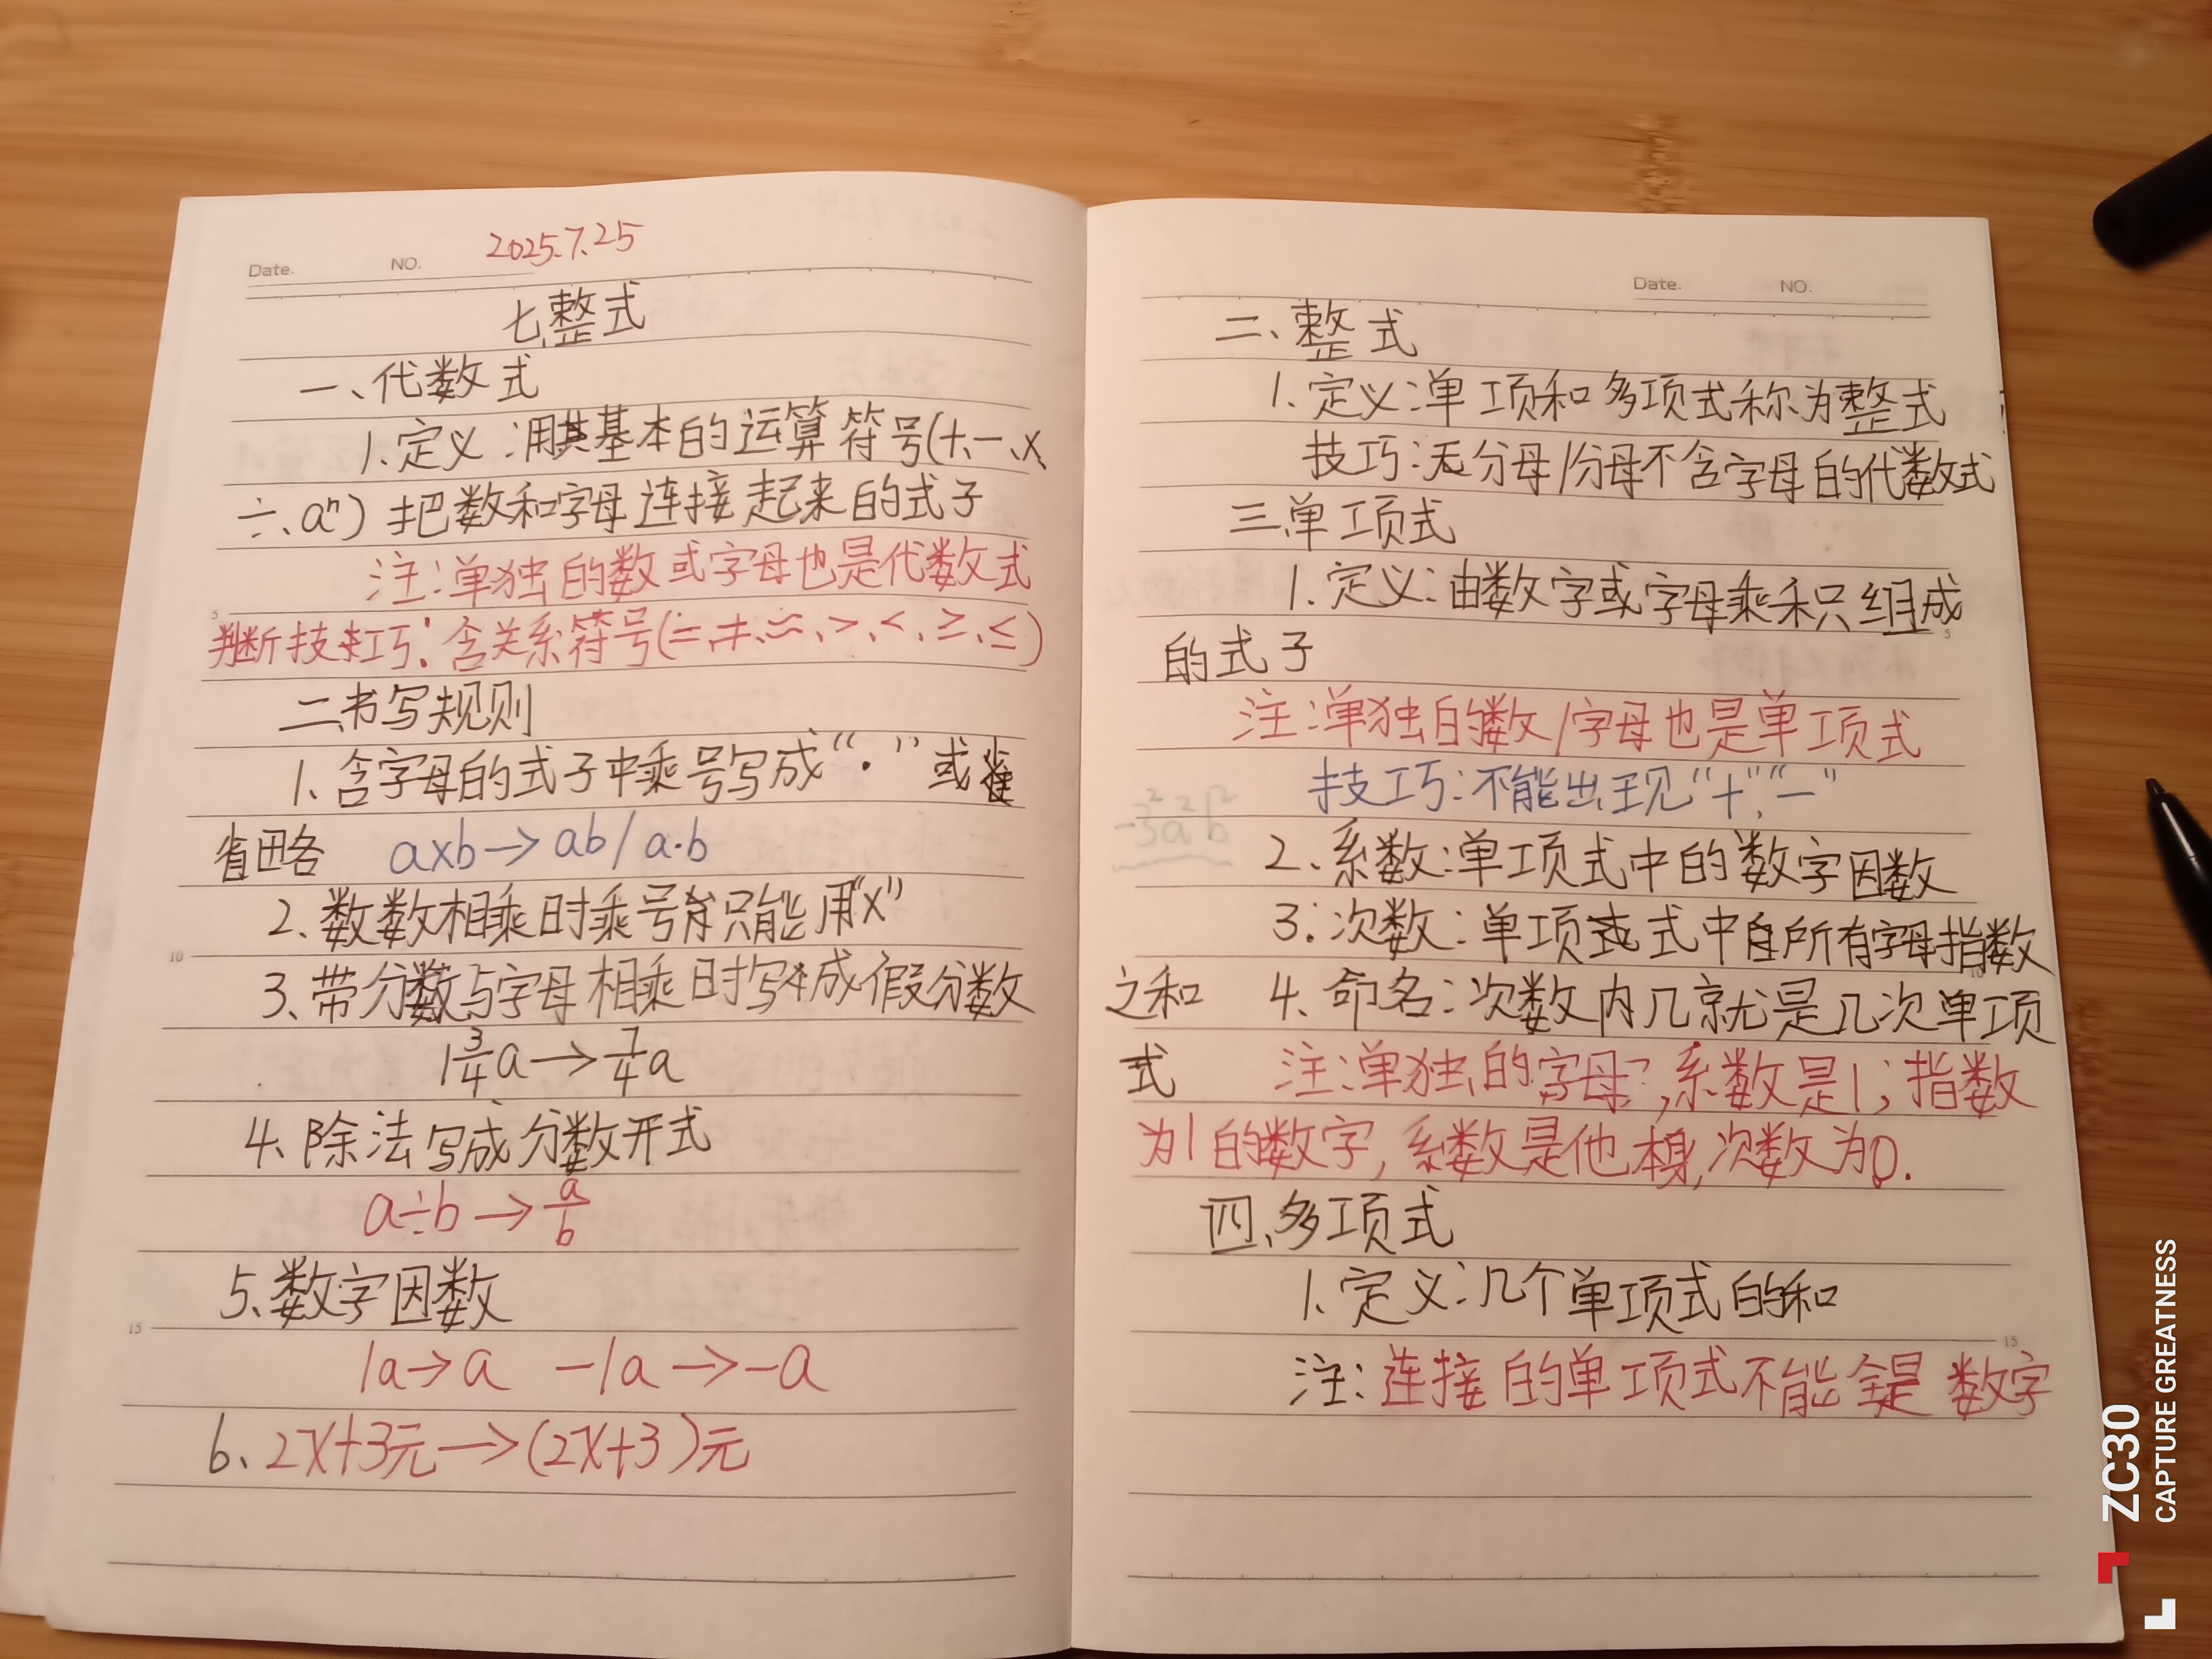 Date. NO. 2025.7.25
七、整式
一、代数式
1.定义:用基本的运算符号(+、-、×、
÷、aⁿ)把数和字母连接起来的式子
注:单独的数或字母也是代数式
判断技巧:含关系符号(=、≠、≈、>、<、≥、≤)
二、书写规则
1、含字母的式子中乘号写成“·”或
省略 a×b→ab/a·b
2、数数相乘时乘号只能用“×”
3、带分数与字母相乘时写成假分数
1 3/4 a→7/4 a
4、除法写成分数开式
a÷b→a/b
5、数字因数
1a→a -1a→-a
6、2x+3元→(2x+3)元
Date. NO.
二、整式
1.定义:单项和多项式称为整式
技巧:无分母/分母不含字母的代数式
三、单项式
1.定义:由数字或字母乘积组成
的式子
注:单独的数/字母也是单项式
技巧:不能出现“+”、“-”
-3²a²b²
2、系数:单项式中的数字因数
3.次数:单项式中所有字母指数
之和 4.命名:次数内几就是几次单项
式 注:单独的字母,系数是1;指数
为1的数字,系数是他本身,次数为0.
四、多项式
1.定义:几个单项式的和
注:连接的单项式不能全是数字
5
10
15
5
10
15
ZC30
CAPTURE GREATNESS